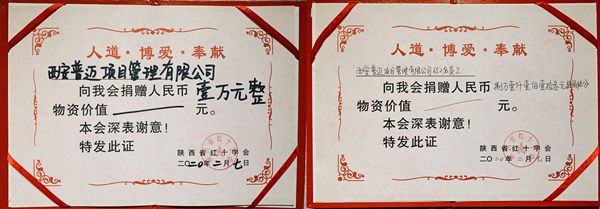 人道·博爱·奉献
西安普迈项目管理有限公司
向我会捐赠人民币壹万元整
物资价值 元。
本会深表谢意！
特发此证
陕西省红十字会
二〇二〇年二月七日
人道·博爱·奉献
西安普迈项目管理有限公司
向我会捐赠人民币
物资价值 元。
本会深表谢意！
特发此证
陕西省红十字会
二〇二〇年二月七日